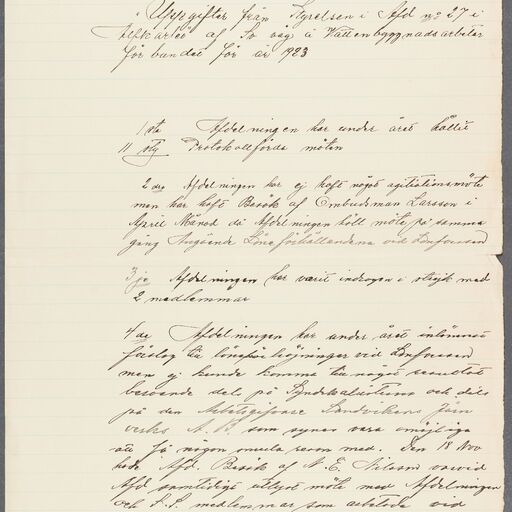 Uppgifter från Styrelsen i Afd no 27 i
Elfkarleö af Sv väg å Vattenbyggnadsarbetar
förbundet för år 1923
1 sta Afdelningen har under året hållit
11 Protokollförda möten
2 dra Afdelningen har ej haft något agitationsmöte
men har haft Besök af Ombudsman Larsson i
April Månad då Afdelningen höll möte på samma
gång Angående Löneförhållandena vid Länforssen
3 je Afdelningen har varit indragen i strejk med
2 medlemmar
4 de Afdelningen har under året inlämnat
förslag till löneförhöjningar vid Länforssen
men ej kunde komma till något resultat
beroende dels på Syndikalisterna och dels
på den Arbetsgifvare Sandvikens Järn
verks A. B. som synes vara omöjliga
att få någon med. Den 18 Nov
hade Afd. Besök af A. E. Nilsson varvid
Afd samtidigt utlyst möte med Afdelningen
och L.S. medlemmar som arbetade vid